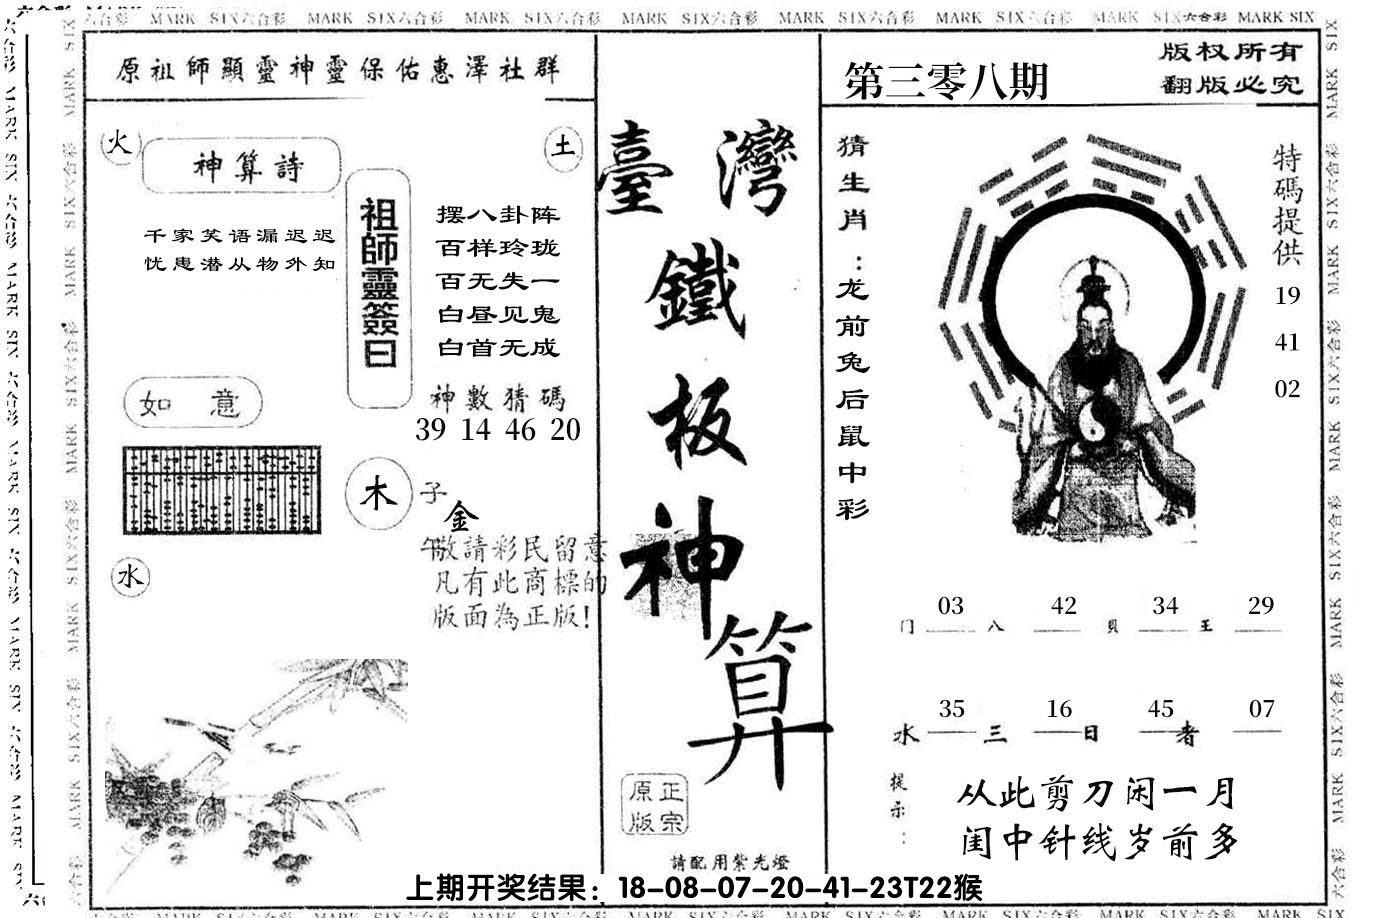 MARK SIX六合彩 MARK SIX六合彩 MARK SIX六合彩 MARK SIX六合彩 MARK SIX六合彩 MARK SIX六合彩 MARK SIX六合彩 MARK SIX
原祖師顯靈神靈保佑惠澤社群
火
神算詩
土
千家笑语漏迟迟
忧患潜从物外知
祖師靈簽曰
摆八卦阵
百样玲珑
百无失一
白昼见鬼
白首无成
神數猜碼
39 14 46 20
如 意
木
子
金
午
敬請彩民留意
凡有此商標的
版面為正版!
水
臺灣
鐵
板
神
算
正宗
原版
請配用紫光燈
第三零八期
版权所有
翻版必究
猜生肖:龙前兔后鼠中彩
特碼提供
19
41
02
03 42 34 29
门 八 貝 王
35 16 45 07
水 三 日 者
提示:
从此剪刀闲一月
闺中针线岁前多
上期开奖结果:18-08-07-20-41-23T22猴